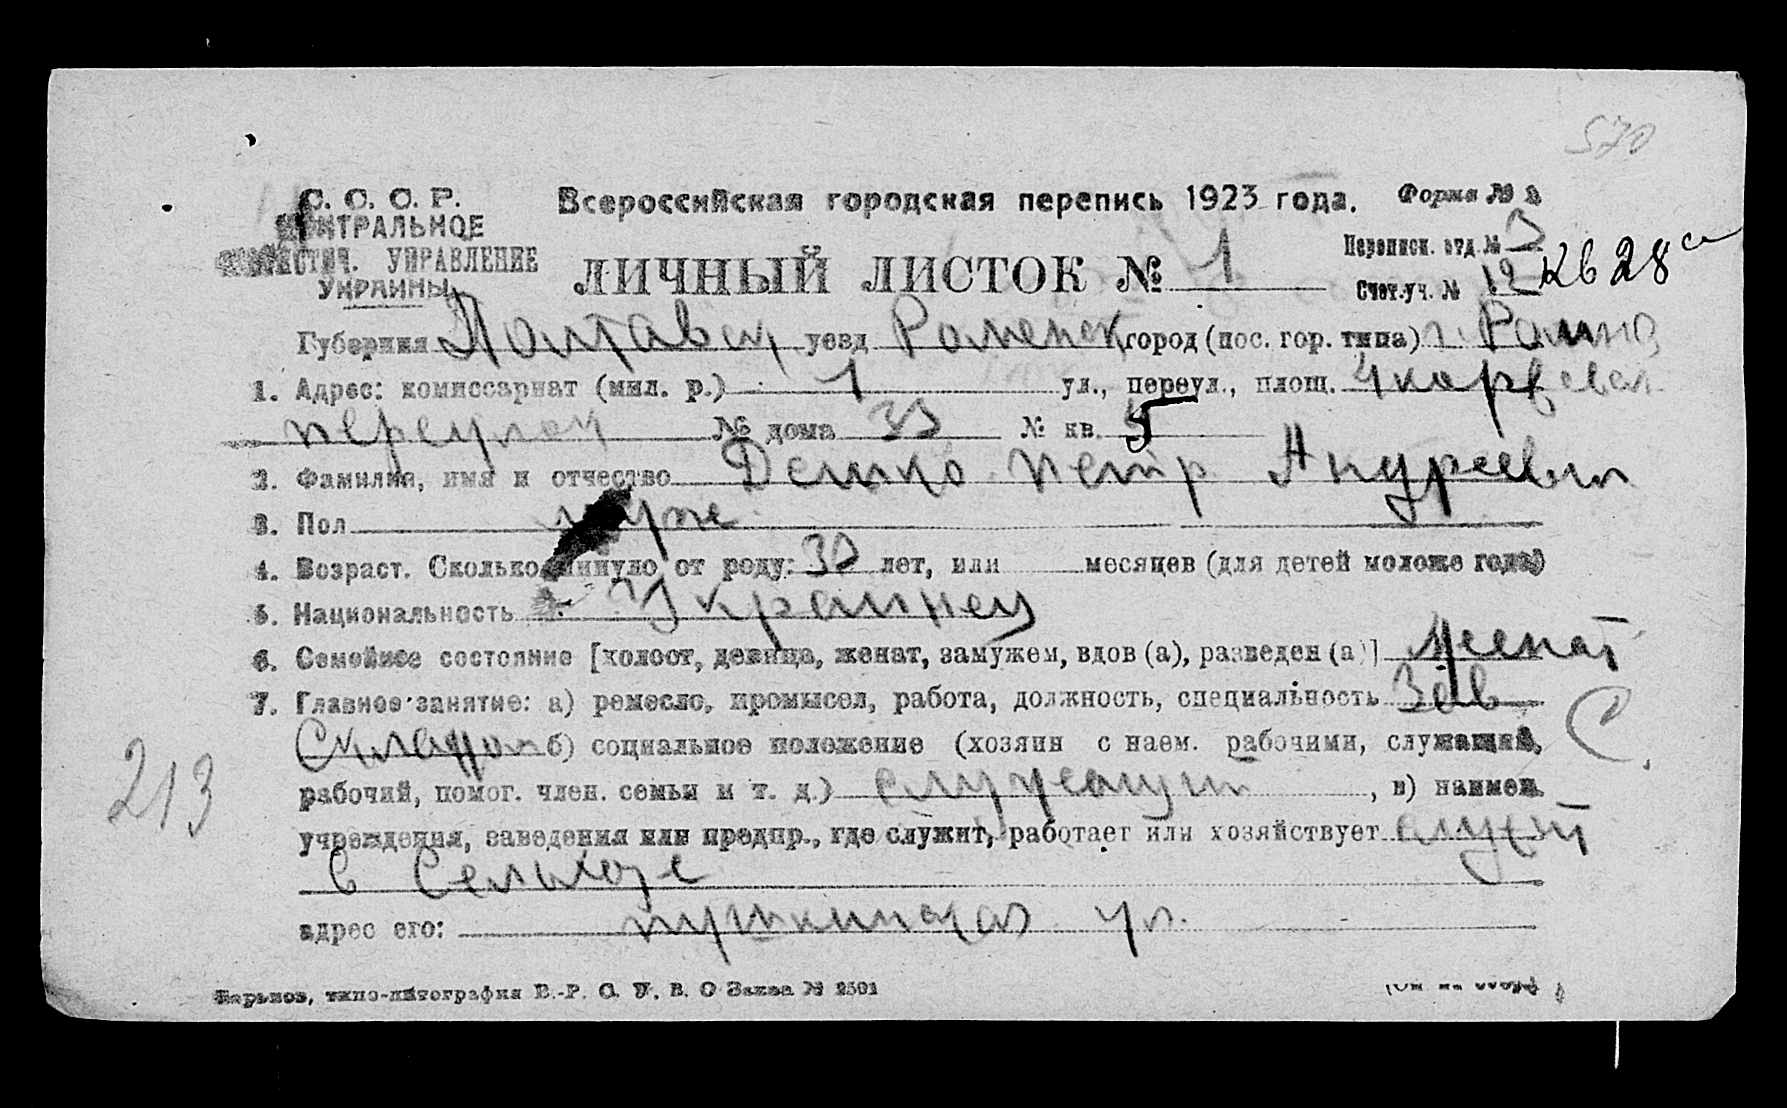 570
С. С. С. Р.
ЦЕНТРАЛЬНОЕ
СТАТИСТИЧ. УПРАВЛЕНИЕ
УКРАИНЫ
Всероссийская городская перепись 1923 года.
Форма № 2
ЛИЧНЫЙ ЛИСТОК № 1
Переписн. отд. № 3
Счет. уч. № 12 кв 28
Губерния Полтавск уезд Роменск город (пос. гор. типа) г. Ромны
1. Адрес: комиссариат (мил. р.) 1 ул., переул., площ.
переулок № дома 33 № кв. 5
2. Фамилия, имя и отчество Демко Петр Андреевич
3. Пол муж
4. Возраст. Сколько минуло от роду: 30 лет, или месяцев (для детей моложе года)
5. Национальность Украинец
6. Семейное состояние [холост, девица, женат, замужем, вдов (а), разведен (а)] Женат
7. Главное занятие: а) ремесло, промысел, работа, должность, специальность Зав
Складом б) социальное положение (хозяин с наем. рабочими, служащий,
С
213
рабочий, помог. член. семьи и т. д.) служащий, в) наимен.
учреждения, заведения или предпр., где служит, работает или хозяйствует служит
в
адрес его: пушкинская ул.
Харьков, типо-литография В.-Р. С. У. В. О Заказ № 2501